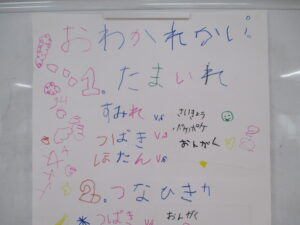 おわかれかい
1.たまいれ
すみれ VS さいきょう
ポケポケ
つばき VS おんがく
ぼたん VS
2.つなひき
つばき VS おんがく